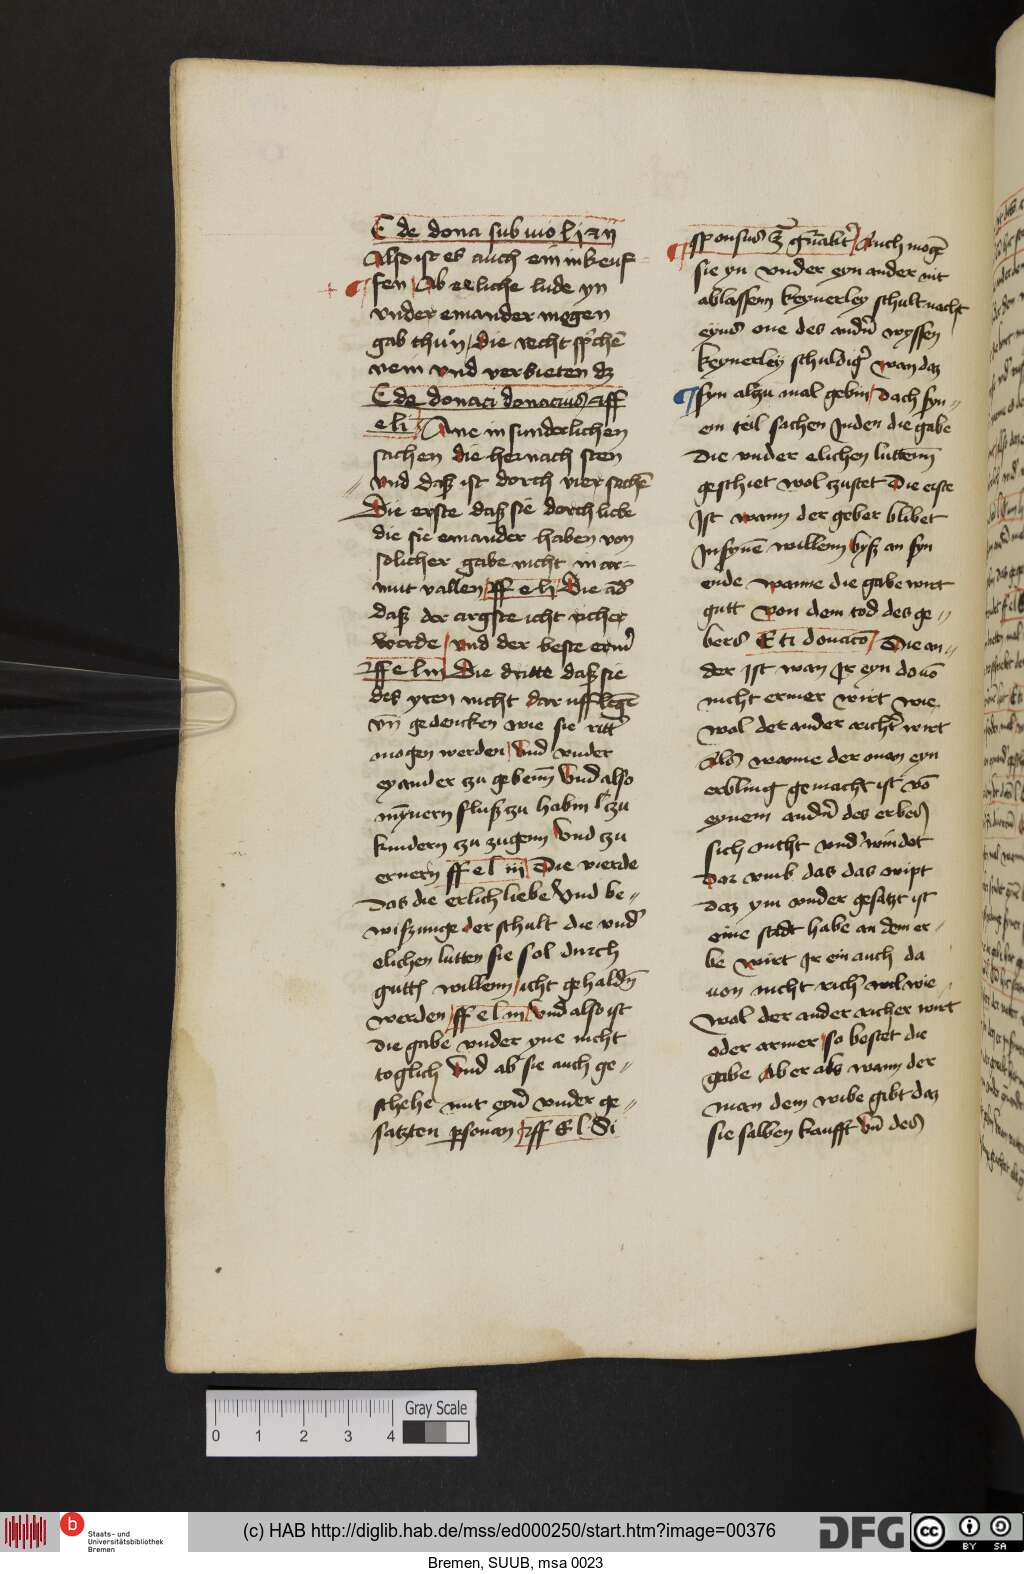 C de dona sub uio l i an
Also ist es auch ein inkeuf-
fen Ab eeliche lude yn
vnder einander mogen
gab thun die recht sprechē
nein vnd verbieten dz
C de donaci donacius ff
e li Ane in sunderlichen
sachen die hernach sten
vnd daß ist dorch vier sachē
Die erste daß sie dorch liebe
die sie einander haben von
solicher gabe nicht in ar-
mut vallen ff e li Die ād
daß der argste icht richer
werde vnd der beste erm̄
ff e l in Die dritte daß sie
des yren nicht dar uff legē
vn̄ gedencken wie sie ritt
mogen werden vnd vnder
eyander zu gebenn vnd also
iren fluß zu habin zu
kindern zu zugenn vnd zu
ernern ff e l iij Die vierde
Das die erlich liebe vnd be-
wißunge der schult die vnd
elichen lutten sie sol durch
gutts willenn icht gehaldn̄
werden ff e l in vnd also ist
die gabe vnder yne nicht
toglich vnd ab sie auch ge-
schehe mit eyn̄ vnder ge-
satzten psonan ff E l Si
sponsus gn̄alit Auch mogē
sie yn vnder eyn ander nit
ablassenn keynerley schult nacht
eyns one des andn̄ wyssen
keynerley schuldig wan daz
syn alzu mal gebin Dach syn-
ein teil sachen Inden die gabe
Die vnder elichen luttenn
geschiet wol zustet Die erste
Ist wann der geber blibet
In synē willenn byß an syn
ende wanne die gabe wirt
gutt von dem tod des ge-
bers E ti donacō Die an-
der Ist wan Ir eyn do vō
nicht ermer wirt wie
wol der ander richer wirt
Als wanne der man eyn
erbling gemacht ist vō
eynem andn̄ des erbes
sich nicht vnd windet
Dar vmb das das wipt
Daz ym vnder gesatzt ist
eine stadt habe an dem er-
be wirt Ir ein auch da
uon nicht rich wil wie
wol der ander richer wirt
oder armer so bestet die
gabe Ab er als wann der
man dem wibe gibt daz
sie salben kaufft vn̄ des
0 1 2 3 4 Gray Scale
b Staats- und
Universitätsbibliothek
Bremen
(c) HAB http://diglib.hab.de/mss/ed000250/start.htm?image=00376
DFG
cc BY SA
Bremen, SUUB, msa 0023